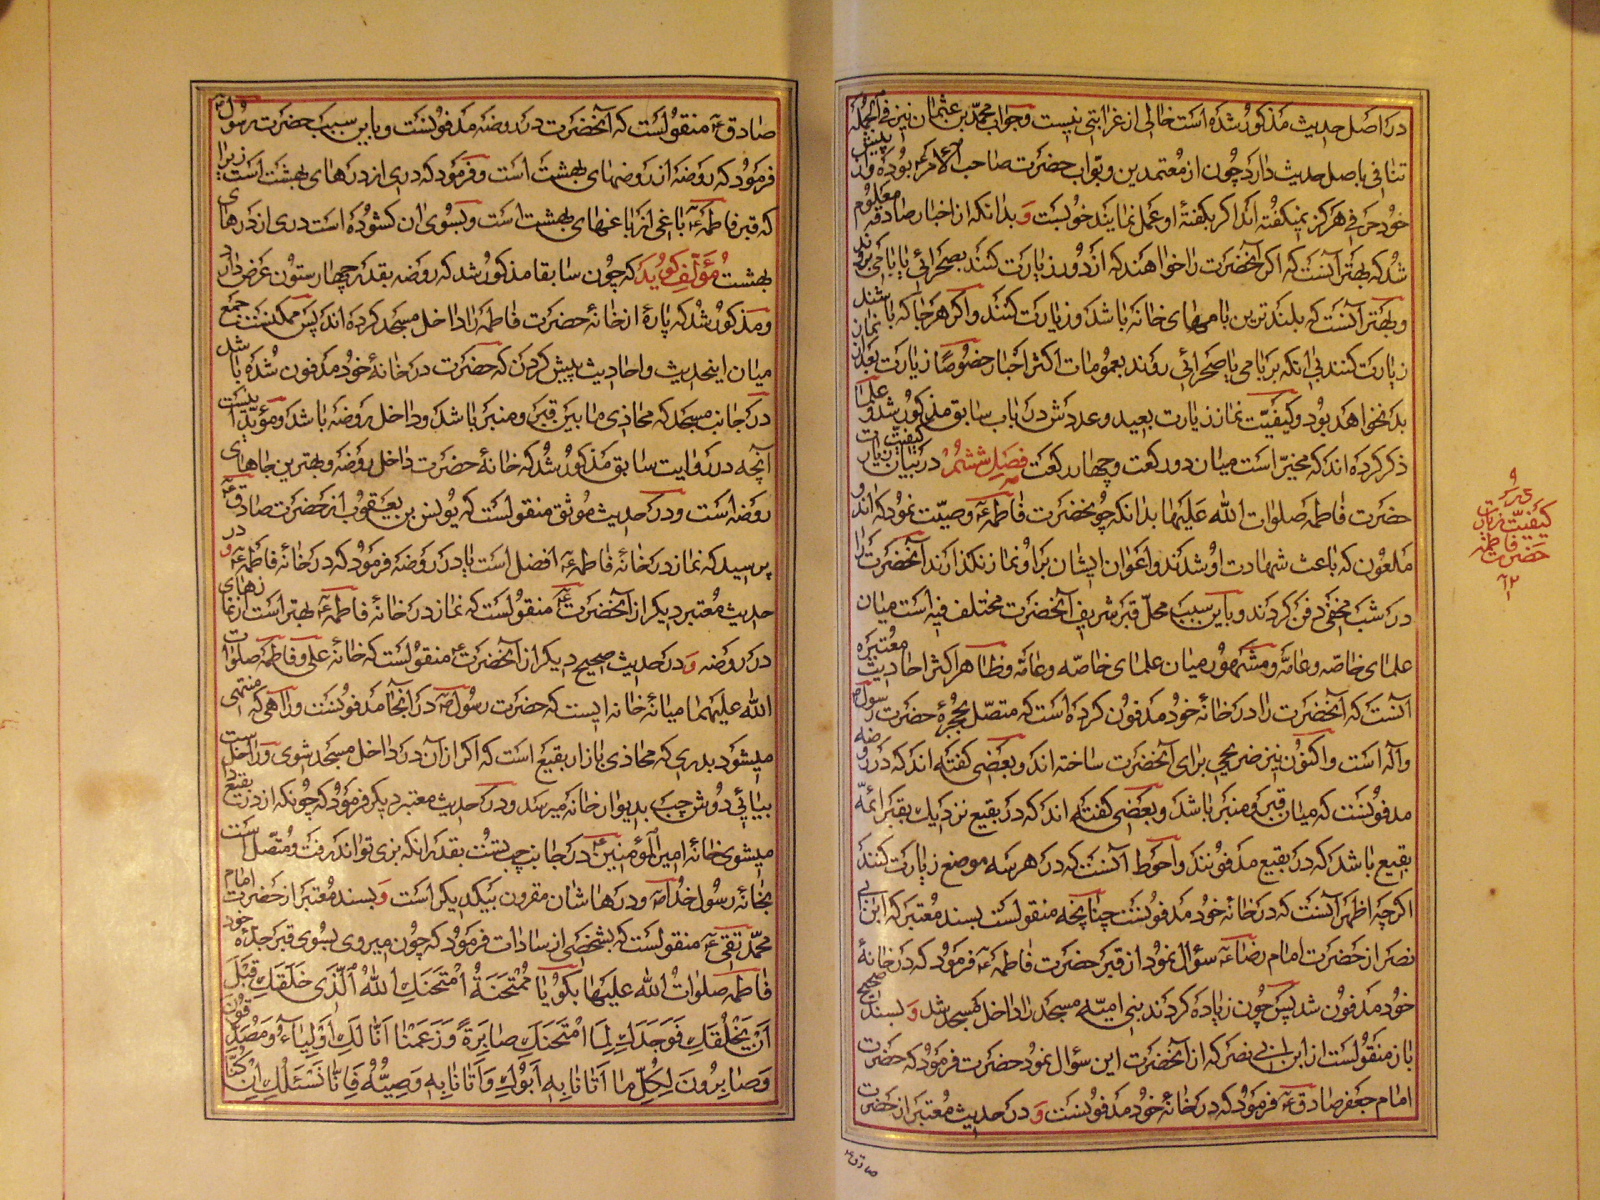 در اصل حدیث مذکور شده است خالی از غرابتی نیست و جواب محمد بن عثمان نیز فی الجمله
تنافی با صل حدیث دارد چون از معتمدین و نواب حضرت صاحب الامر ع بوده و از پیش
خود حرفی هرگز نمیگفته اند اگر بگفتهٔ او عمل نمایند خوبست و بدانکه از اخبار صادقه معلوم
شد که بهتر آنست که اگر آنحضرت را خواهند که از دور زیارت کنند بصحرائی یا بامی بروند
و بهتر آنست که بلندترین بامهای خانه باشد و زیارت کنند و اگر هر جا که باشند
زیارت کنند بی انکه بر بامی یا صحرائی روند بعمومات اکثر اخبار خصوصًا زیارت بعد از نماز
بد نخواهد بود و کیفیّت نماز زیارت بعید و عددش در باب سابق مذکور شد و علما
ذکر کرده اند که مخیّر است میان دو رکعت و چهار رکعت فصل ششم در بیان کیفیّت زیارت
حضرت فاطمه صلوات الله علیها بدانکه چون حضرت فاطمه ع وصیّت نمود که اند و
ملعون که باعث شهادت او شدند و اعوان ایشان بر او نماز نگذارند آنحضرت را
در شب مخفی دفن کردند و باین سبب محلّ قبر شریف آنحضرت مختلف فیه است میان
علمای خاصّه و عامّه و مشهور میان علمای خاصّه و عامّه و ظاهر اکثر احادیث معتبره
آنست که آنحضرت را در خانهٔ خود مدفون کرده است که متصّل بحجرهٔ حضرت رسول ص
و آله است و اکنون نیز ضریحی برای آنحضرت ساخته اند و بعضی گفته اند که در روضه
مدفونست که میان قبر و منبر باشد و بعضی گفته اند که در بقیع نزدیک بقبر ائمّه
بقیع باشد که در بقیع مدفونند و احوط آنست که در هر سه موضع زیارت کنند
اگرچه اظهر آنست که در خانهٔ خود مدفونست چنانچه منقولست بسند معتبر که ابن ابی
نصر از حضرت امام رضا ع سؤال نمود از قبر حضرت فاطمه ع فرمود که در خانهٔ
خود مدفون شد پس چون زیاده کردند بنی امیّه مسجد را داخل مسجد شد و بسند صحیح
باز منقولست از ابن ابی نصر که از آنحضرت این سؤال نمود حضرت فرمود که حضرت
امام جعفر صادق ع فرمود که در خانهٔ خود مدفونست و در حدیث معتبر از حضرت
صادق ع
در
کیفیّت زیارت
حضرت فاطمه
صادق ع منقولست که آنحضرت در روضه مدفونست و باین سبب حضرت رسول ص
فرمود که روضه از روضهای بهشت است و فرمود که دری از درهای بهشت است زیرا
که قبر فاطمه ع باغی از باغهای بهشت است و بسوی ان گشوده است دری از درهای
بهشت مؤلف گوید که چون سابقا مذکور شد که روضه بقدر چهار ستون عرض دارد
و مذکور شد که پارهٔ از خانهٔ حضرت فاطمه را داخل مسجد کرده اند پس ممکنست جمع
میان اینحدیث و احادیث پیش کردن که حضرت در خانهٔ خود مدفون شده باشد
در جانب مسجد که محاذی مابین قبر و منبر باشد و داخل روضه باشد و مؤید اینست
آنچه در روایت سابق مذکور شد که خانهٔ حضرت داخل روضه و بهترین جاهای
روضه است و در حدیث موثق منقولست که یونس بن یعقوب از حضرت صادق ع
پرسید که نماز در خانهٔ فاطمه ع افضل است یا در روضه فرمود که در خانهٔ فاطمه ع و در
حدیث معتبر دیگر از آنحضرت ع منقولست که نماز در خانهٔ فاطمه ع بهتر است از نمازهای
در روضه و در حدیث صحیح دیگر از آنحضرت ع منقولست که خانهٔ علی و فاطمه صلوات
الله علیهما میانهٔ خانه ایست که حضرت رسول ص در انجا مدفونست و راهی که منتهی
میشود بدری که محاذی بازار بقیع است که اگر از آن در داخل مسجد شوی و راست
بیائی دوش چپ بدیوار خانه میرسد و در حدیث معتبر دیگر فرمود که چونکه از در بقیع داخل
میشوی خانهٔ امیر المؤمنین ع در جانب چپ تست بقدر انکه بزی تواند رفت و متّصل است
بخانهٔ رسول خدا ص و درهاشان مقرون بیکدیگر است و بسند معتبر از حضرت امام
محمّد تقی ع منقولست که بشخصی از سادات فرمود که چون میروی بسوی قبر جدّهٔ خود
فاطمه صلوات الله علیها بگو یا مُمْتَحَنَةُ اِمْتَحَنَكِ اللهُ الَّذی خَلَقَكِ قَبْلَ
اَنْ یَخْلُقَكِ فَوَجَدَكِ لِمَا امْتَحَنَكِ صابِرَةً وَزَعَمْنا اَنّا لَكِ اَوْلِیآءُ وَمُصَدِّقُونَ
وَصابِرُونَ لِکُلِّ ما اَتانا بِهِ اَبُوكِ وَاَتانا بِهِ وَصِیُّهُ فَاِنّا نَسْئَلُكِ اِنْ کُنّا